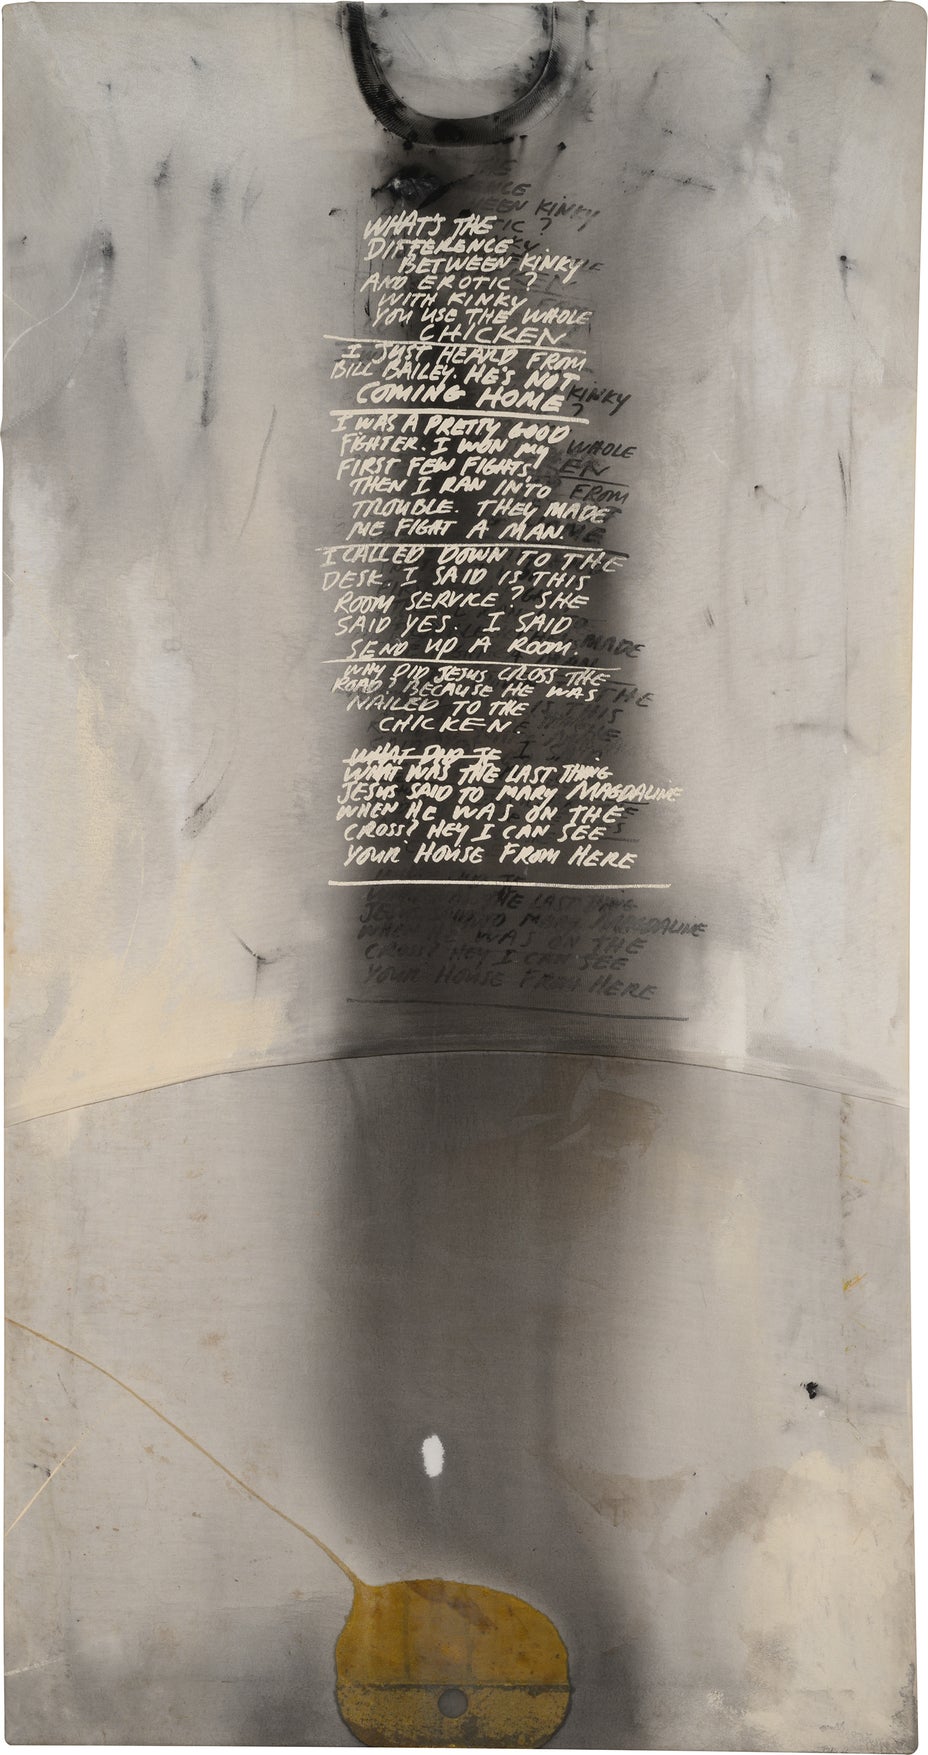 WHAT'S THE
DIFFERENCE
BETWEEN KINKY
AND EROTIC?
WITH KINKY
YOU USE THE WHOLE
CHICKEN
I JUST HEARD FROM
BILL BAILEY. HE'S NOT
COMING HOME
I WAS A PRETTY GOOD
FIGHTER. I WON MY
FIRST FEW FIGHTS,
THEN I RAN INTO
TROUBLE. THEY MADE
ME FIGHT A MAN.
I CALLED DOWN TO THE
DESK. I SAID IS THIS
ROOM SERVICE? SHE
SAID YES. I SAID
SEND UP A ROOM.
WHY DID JESUS CROSS THE
ROAD? BECAUSE HE WAS
NAILED TO THE
CHICKEN.
WHAT DID JE
WHAT WAS THE LAST THING
JESUS SAID TO MARY MAGDALINE
WHEN HE WAS ON THE
CROSS? HEY I CAN SEE
YOUR HOUSE FROM HERE
THE LAST THING
JESUS SAID TO MARY MAGDALINE
WHEN HE WAS ON THE
CROSS? HEY I CAN SEE
YOUR HOUSE FROM HERE